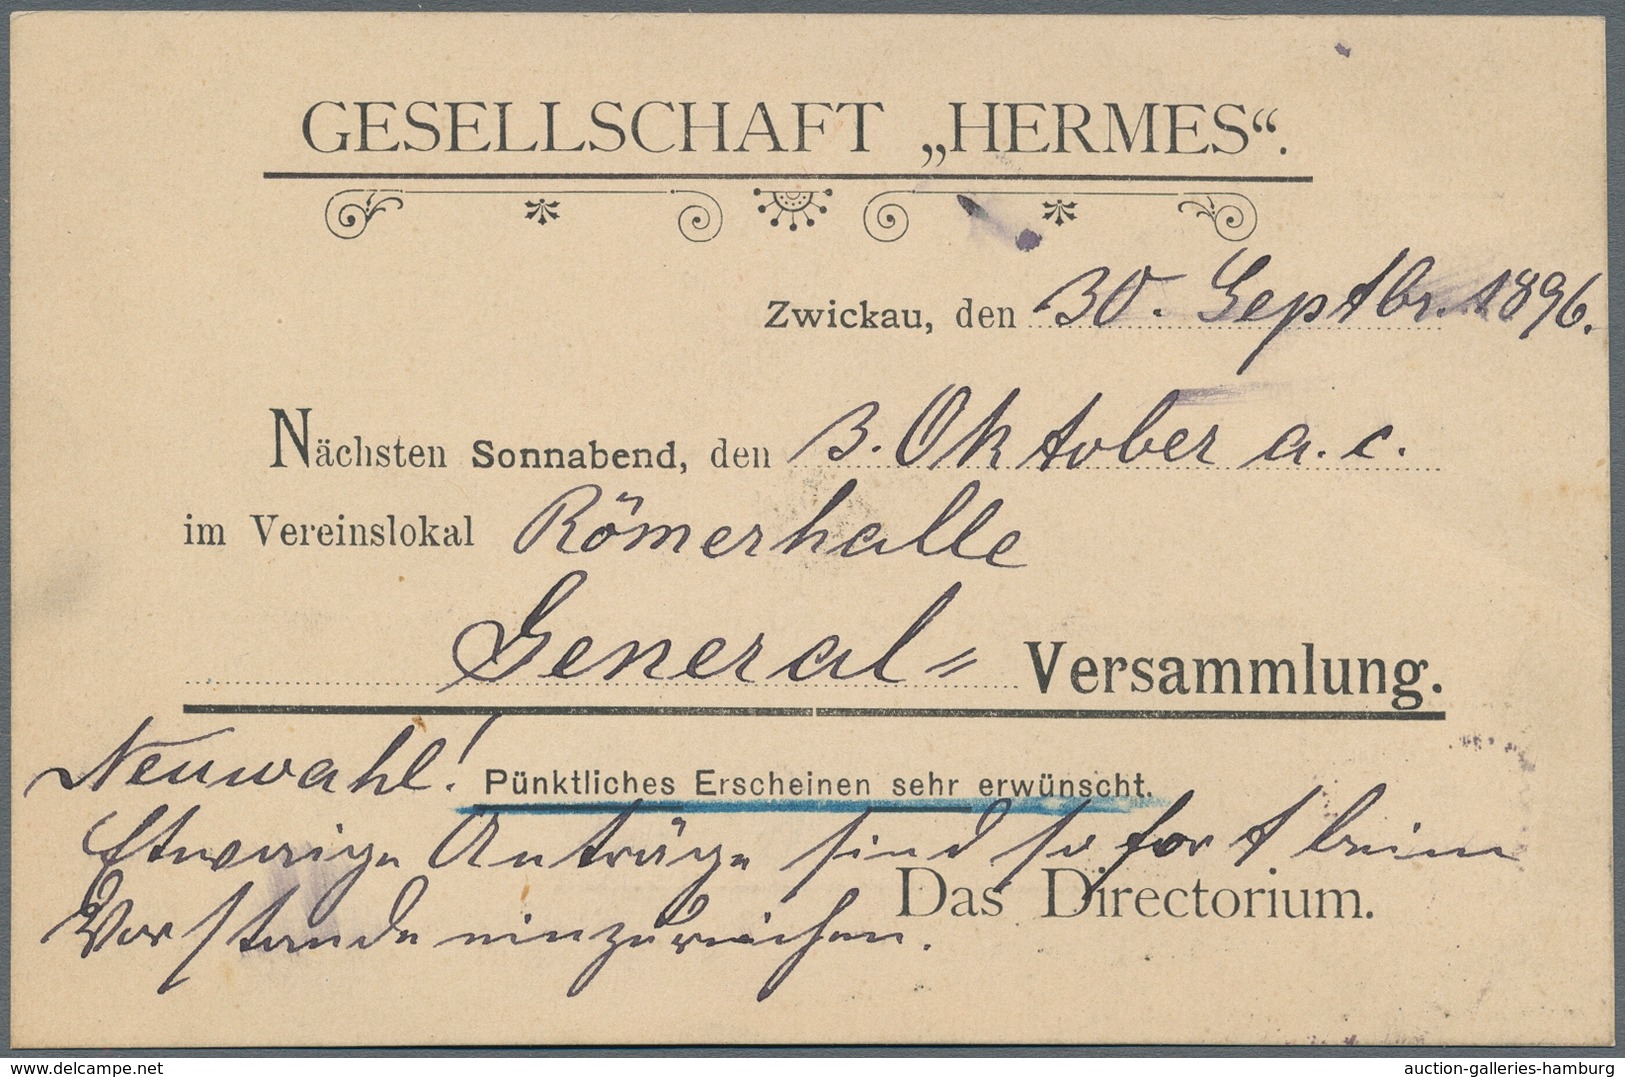 GESELLSCHAFT „HERMES“.
Zwickau, den 30. Septbr. 1896.
Nächsten Sonnabend, den 3. Oktober a. c.
im Vereinslokal Römerhalle
General= Versammlung.
Neuwahl! Pünktliches Erscheinen sehr erwünscht.
Etwaige Anträge sind sofort beim
Das Directorium.
Vorstande einzureichen.
www.delcampe.net
auction-galleries-hamburg